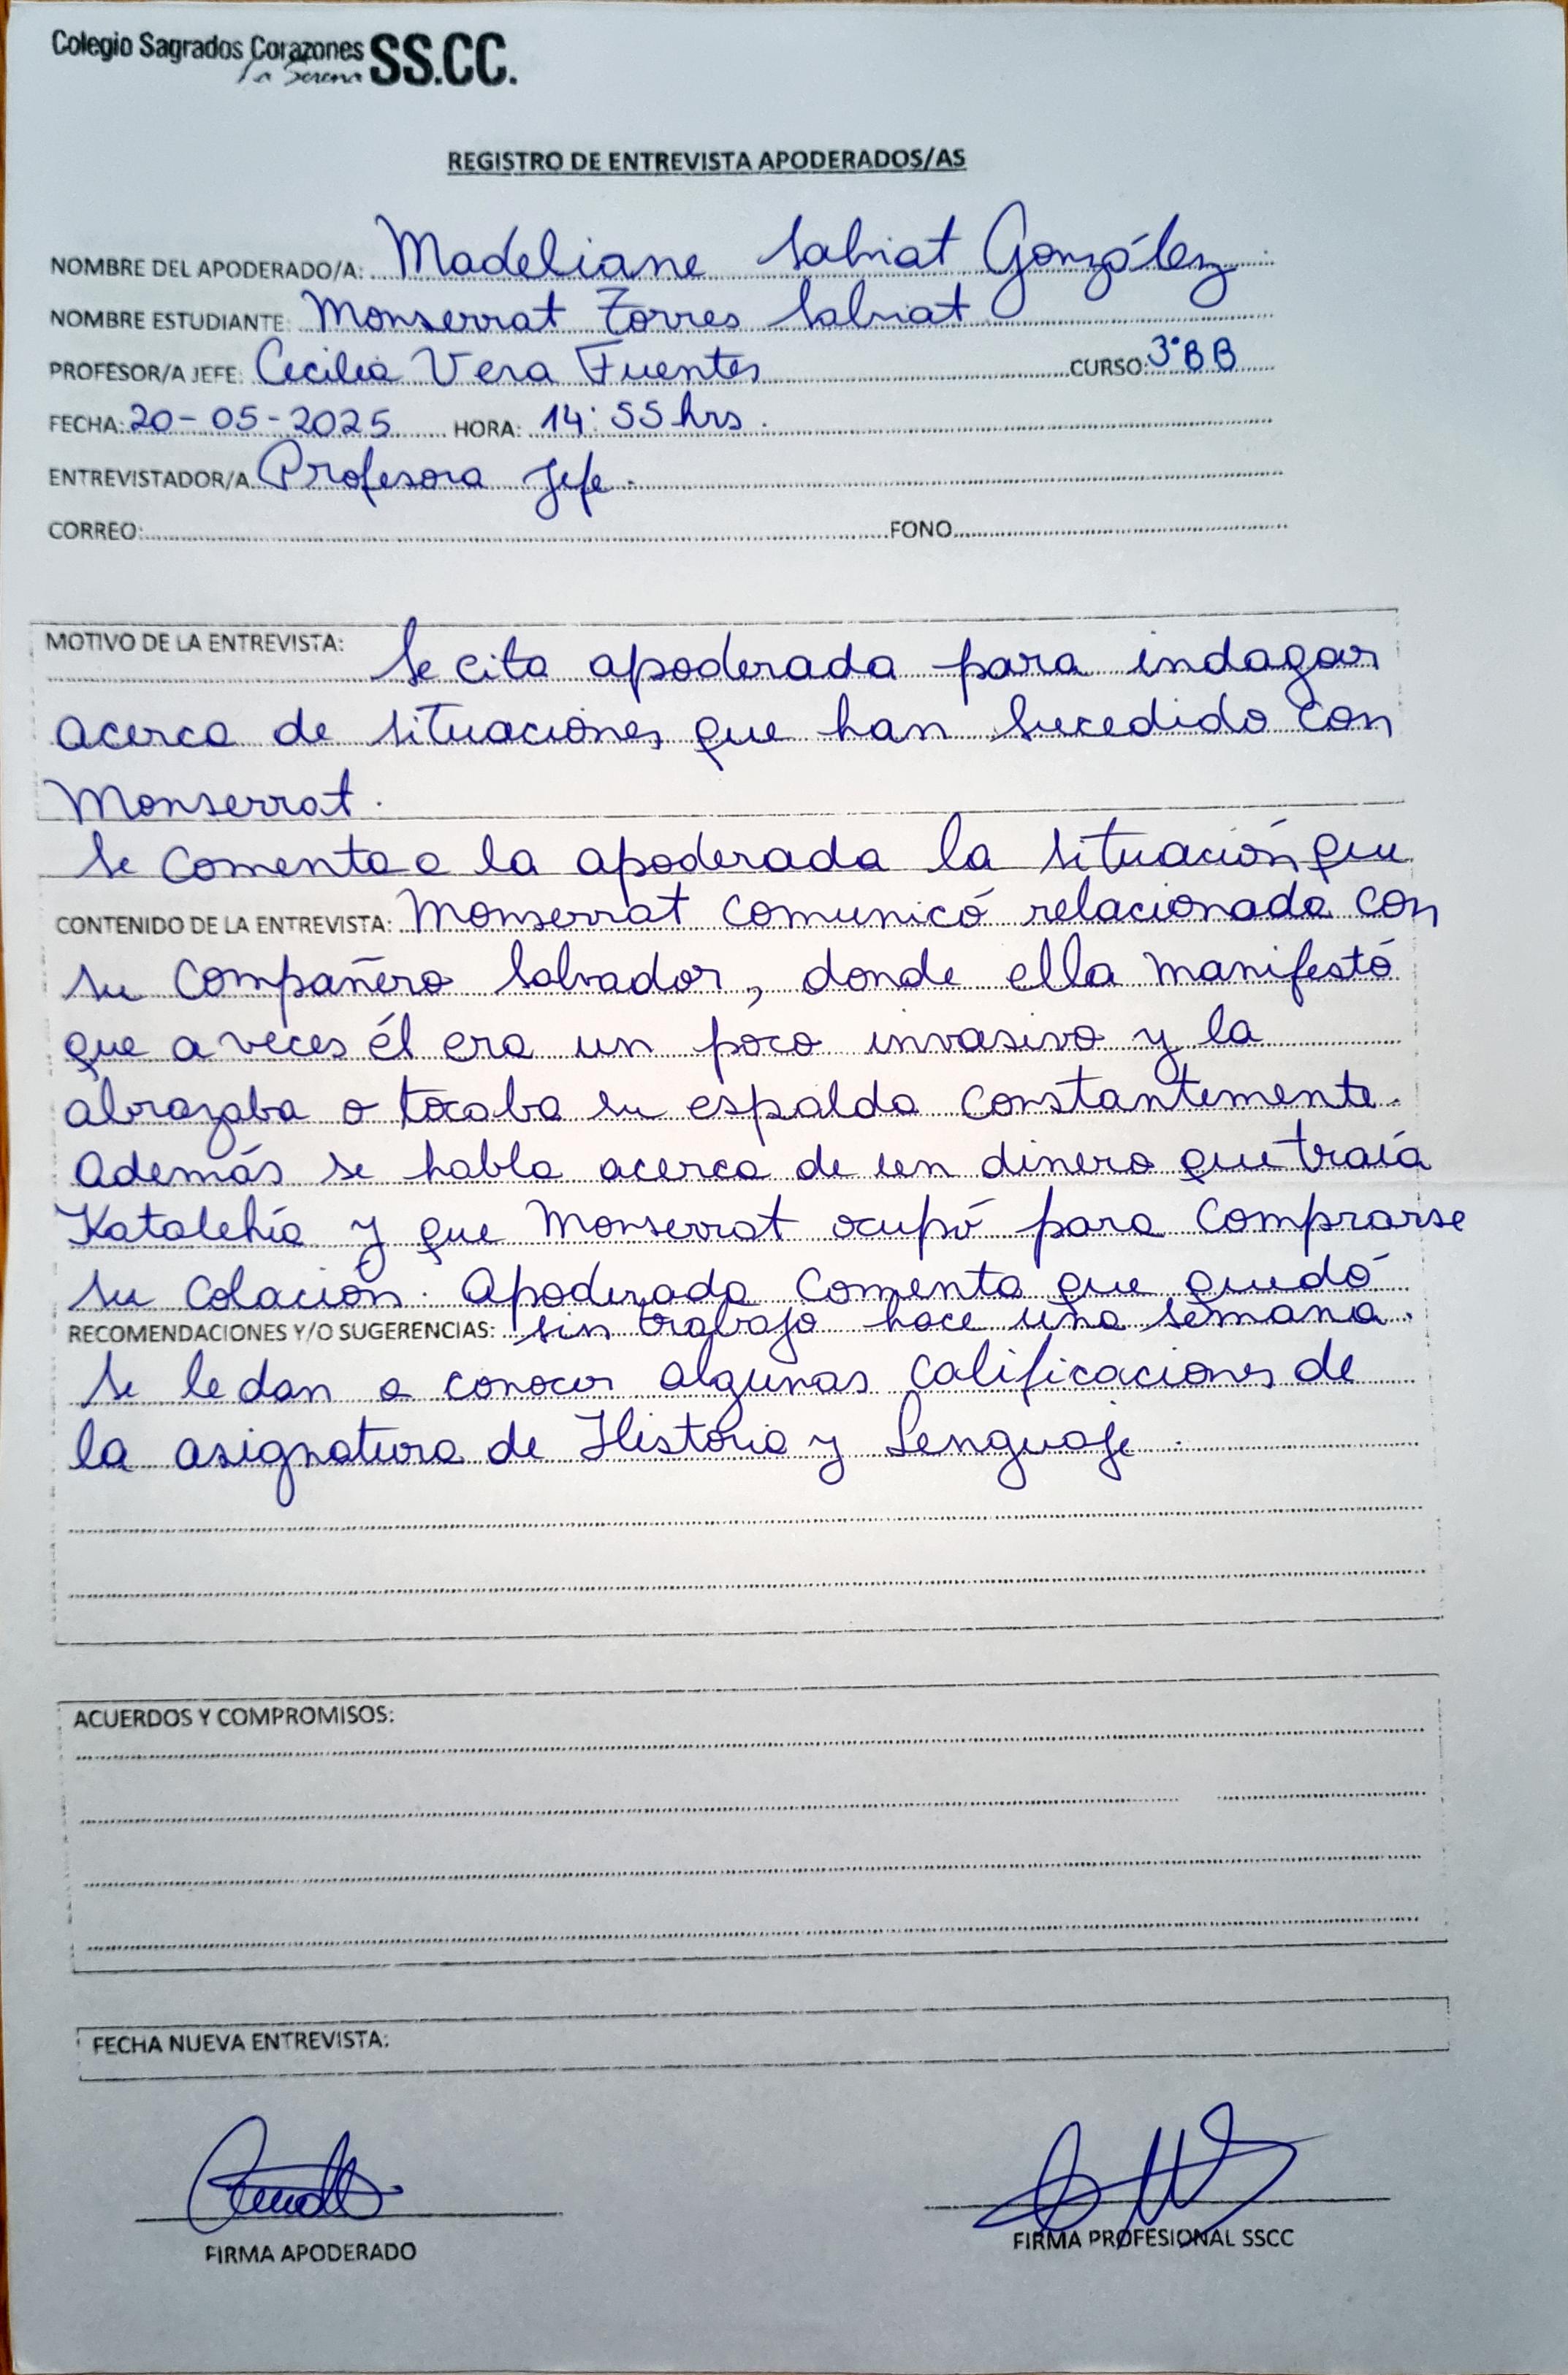 Colegio Sagrados Corazones SS.CC.
La Serena
REGISTRO DE ENTREVISTA APODERADOS/AS
NOMBRE DEL APODERADO/A: Madeliane Salviat González
NOMBRE ESTUDIANTE: Monserrat Torres Salviat
PROFESOR/A JEFE: Cecilia Vera Fuentes CURSO: 3°BB
FECHA: 20-05-2025 HORA: 14:55 hrs.
ENTREVISTADOR/A Profesora Jefe.
CORREO: FONO
MOTIVO DE LA ENTREVISTA: Se cita apoderada para indagar
acerca de situaciones que han sucedido con
Monserrat.
Se comenta a la apoderada la situación que
CONTENIDO DE LA ENTREVISTA: Monserrat comunicó relacionada con
su compañero Salvador, donde ella manifestó
que a veces él era un poco invasivo y la
abrazaba o tocaba su espalda constantemente.
Además se habla acerca de un dinero que traía
y que Monserrat ocupó para comprarse
su colación. Apoderada comenta que quedó
RECOMENDACIONES Y/O SUGERENCIAS: sin trabajo hace una semana.
Se le dan a conocer algunas calificaciones de
la asignatura de Historia y Lenguaje.
ACUERDOS Y COMPROMISOS:
FECHA NUEVA ENTREVISTA:
FIRMA APODERADO FIRMA PROFESIONAL SSCC